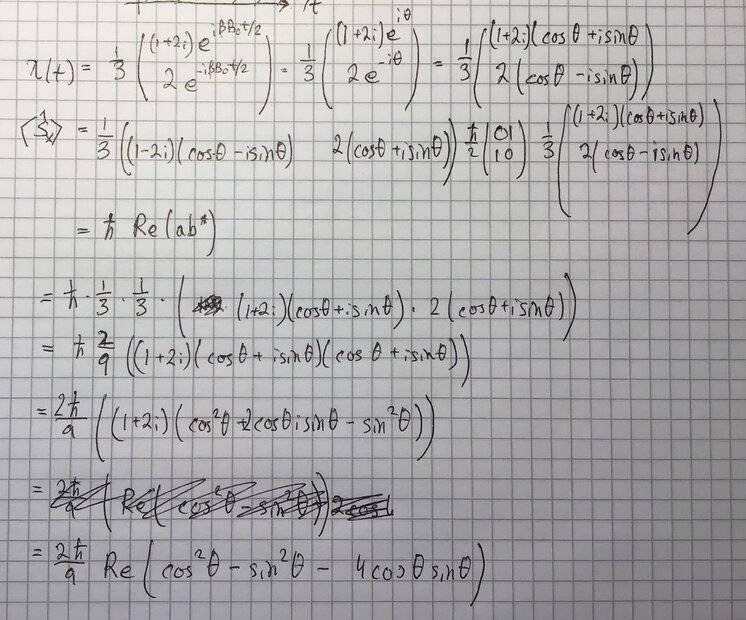 t
χ(t) = 1/3 ( (1+2i) e^{iβB₀t/2} ; 2 e^{-iβB₀t/2} ) = 1/3 ( (1+2i) e^{iθ} ; 2 e^{-iθ} ) = 1/3 ( (1+2i)(cosθ + i sinθ) ; 2(cosθ - i sinθ) )
⟨Ŝₓ⟩ = 1/3 ( (1-2i)(cosθ - i sinθ) 2(cosθ + i sinθ) ) ħ/2 ( 0 1 ; 1 0 ) 1/3 ( (1+2i)(cosθ + i sinθ) ; 2(cosθ - i sinθ) )
= ħ Re(ab*)
= ħ · 1/3 · 1/3 · ( (1+2i)(cosθ + i sinθ) · 2(cosθ + i sinθ) )
= ħ 2/9 ( (1+2i)(cosθ + i sinθ)(cosθ + i sinθ) )
= 2ħ/9 ( (1+2i)(cos²θ + 2cosθ i sinθ - sin²θ) )
= 2ħ/9 ( Re( cos²θ - sin²θ ) ) 2cos
= 2ħ/9 Re( cos²θ - sin²θ - 4cosθ sinθ )